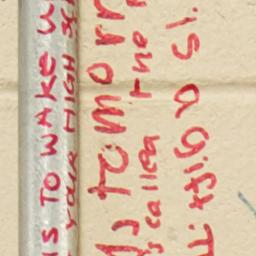 IS TO WAKE
YOUR HIGH
tomorr
called the
is a gift.